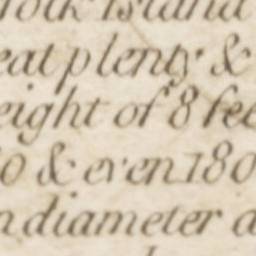 folk Island
eat plenty &
eight of 8 fee
0 & even 180
n diameter a